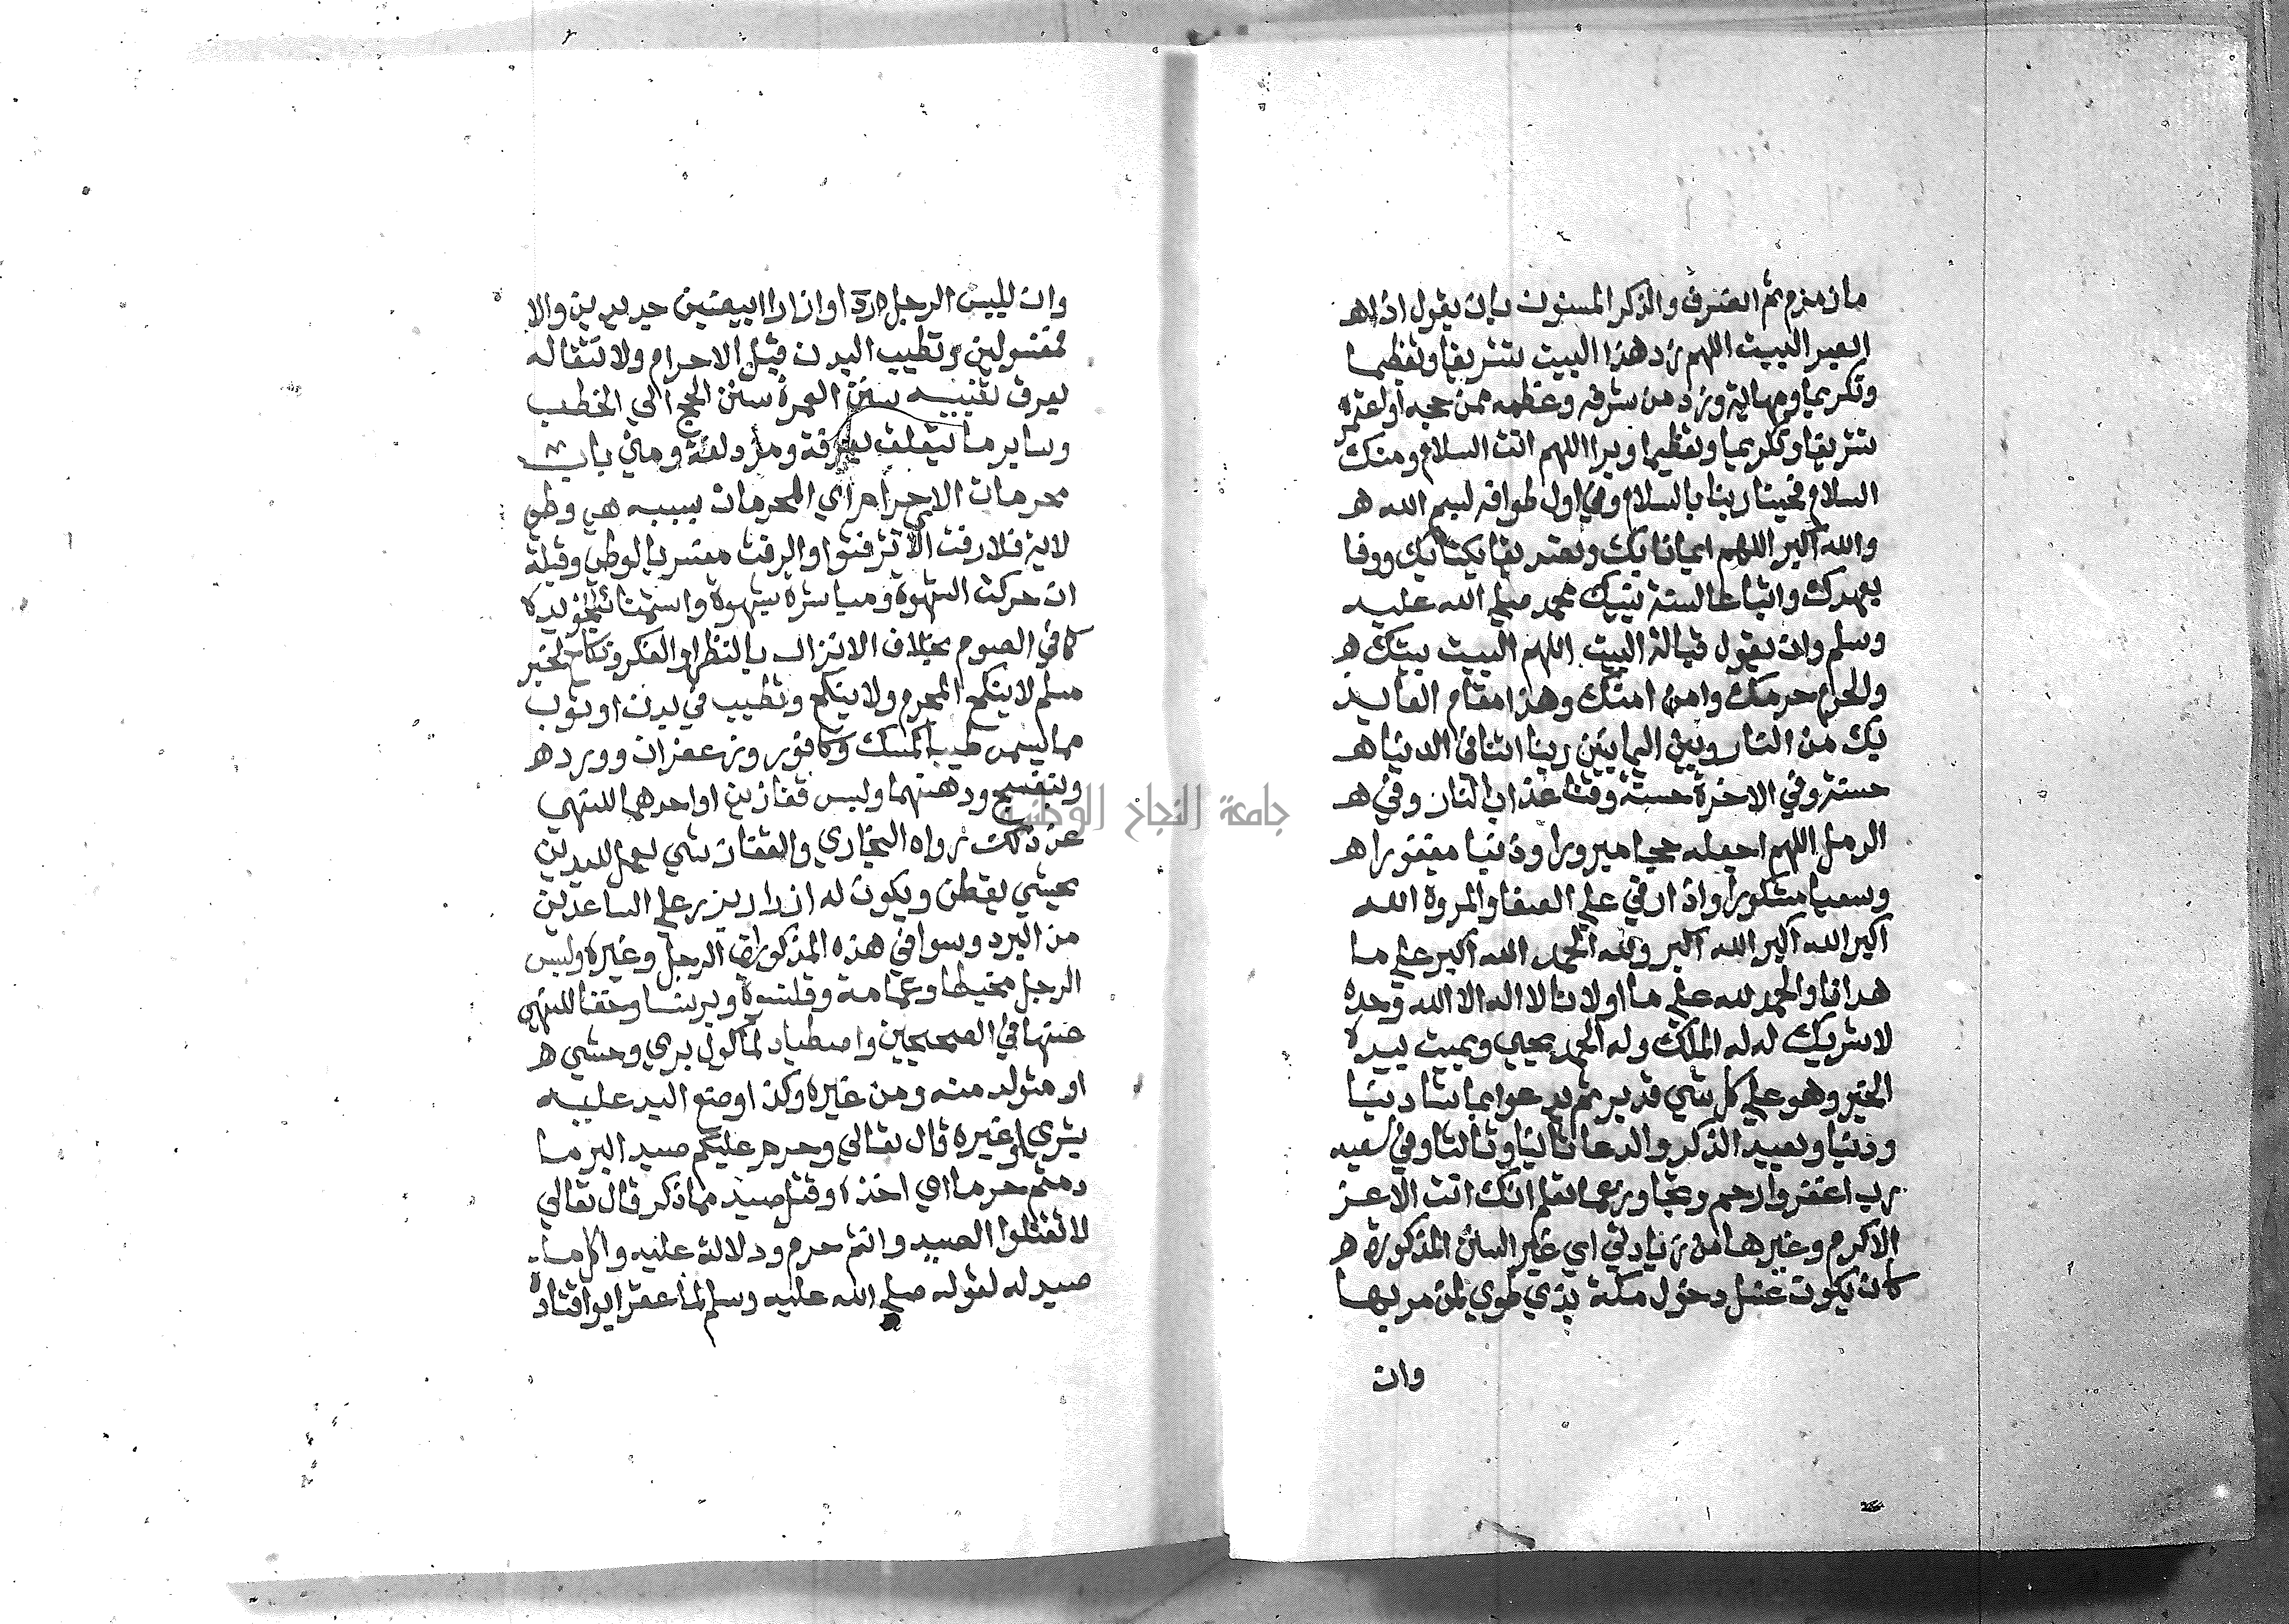 ما زمزم ثم انصرف والذكر المسنون بان يقول اذا هـ
ابصر البيت اللهم زد هذا البيت تشريفا وتعظيما
وتكريما ومهابة وزد من شرفه وعظمه ممن حجه او اعتمره
تشريفا وتكريما وتعظيما وبرا اللهم انت السلام ومنك
السلام فحينا ربنا بالسلام وفي اول طوافه بسم الله هـ
والله اكبر اللهم ايمانا بك وتصديقا بكتابك ووفا
بعهدك واتباعا لسنة نبيك محمد صلي الله عليه
وسلم وان يقول قبالة البيت اللهم البيت بيتك هـ
والحرم حرمك وامن امنك وهذا مقام العايذ
بك من النار وبين اليمانيين ربنا اتنا في الدنيا هـ
حسنة وفي الاخرة حسنة وقنا عذاب النار وفي هـ
الرمل اللهم اجعله حجا مبرورا وذنبا مغفورا هـ
وسعيا مشكورا واذا رقي علي الصفا والمروة الله
اكبر الله اكبر الله اكبر ولله الحمد الله اكبر علي ما
هدانا والحمد لله علي ما اولانا لا اله الا الله وحده
لا شريك له له الملك وله الحمد يحيي ويميت بيده
الخير وهو علي كل شي قدير ثم يدعوا بما شا دينا
ودنيا ويعيد الذكر والدعا ثانيا وثالثا وفي سعيه
رب اغفر وارحم وتجاوز عما تعلم انك انت الاعز
الاكرم وغيرها من زيادتي اي غير السنن المذكورة هـ
كان يكون غسل دخول مكة بذي طوي لمن مر بها
وان
وان يلبس الرجل اردا وازارا ابيضين جديدين والا
مغسولين وتطييب البدن قبل الاحرام ولا تتقاله
يعرف تغييبه سنن العمرة سنن الحج الي الخطب
وساير ما يتعلق بعرفة ومزدلفة ومني باب
محرمات الاحرام اي المحرمات بسببه هي وطي
لاية فلا رفث اي لا ترفثوا والرفث مفسر بالوطي وقبلة
ان حركت الشهوة ومباشرة بشهوة واستمنا بنحو يده
كما في الصوم بخلاف الانزال بالنظر او الفكر ونكاح لخبر
مسلم لا ينكح المحرم ولا ينكح وتطيب في بدن او ثوب
مما يسمى طيبا كمسك وكافور وزعفران وورد هـ
وبنفسج ودهنهما ولبس قفازين او احدهما للنهي
عن ذلك رواه البخاري والقفاز شي يعمل لليدين
يحشي بقطن ويكون له ازرار يزر علي الساعدين
من البرد وسوا في هذه المذكورات الرجل وغيره ولبس
الرجل مخيطا وعمامة وقلنسوة وبرنسا وخفا للنهي
عنها في الصحيحين واصطياد لماكول بري وحشي هـ
او متولد منه ومن غيره وكذا وضع اليد عليه
بشري او غيره قال تعالي وحرم عليكم صيد البر ما
دمتم حرما اي اخذه وقتل صيد مما ذكر قال تعالي
لا تقتلوا الصيد وانتم حرم ودلالة عليه واكل ما
صيد له لقوله صلي الله عليه وسلم لما عقر ابوا قتادة
جامعة النجاح الوطنية